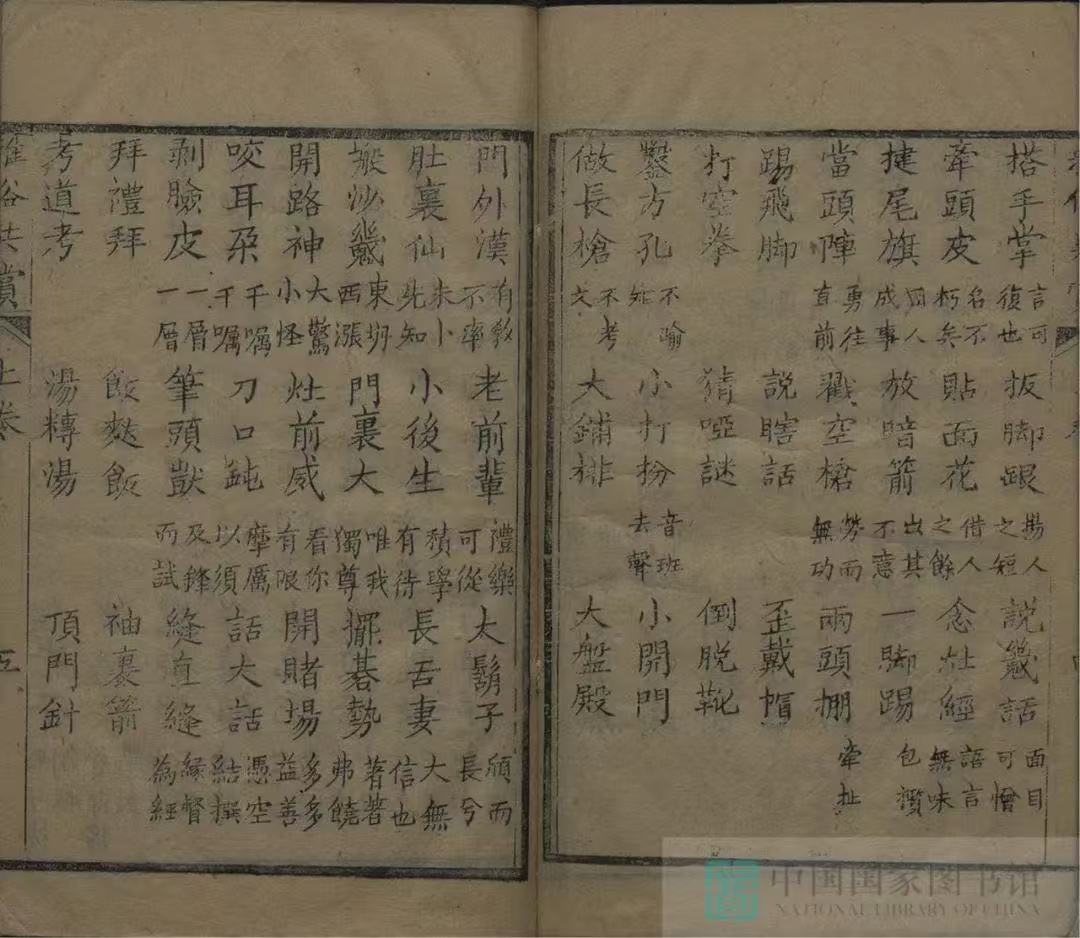 搭手掌 言可復也 扳脚跟 揚人之短 說鬼話 面目可憎
牽頭皮 名不朽矣 貼面花 借人之餘 念肚經 語言無味
揵尾旗 因人成事 放暗箭 出其不意 一脚踢 包攬
當頭陣 勇往直前 戳空槍 勞而無功 兩頭掤 牽扯
踢飛脚 說瞎話 歪戴帽
打空拳 猜啞謎 倒脫靴
鑿方孔 不喻 小打扮 音班去聲 小開門
做長槍 不考文 大鋪排 大盤殿
門外漢 有教不率 老前輩 禮樂可從 大鬍子 頎而長兮
肚裏仙 未卜先知 小後生 積學有待 長吾妻 大無信也
搬沙 東坍西漲 門裏大 唯我獨尊 擺碁勢 著著弗饒
開路神 大驚小怪 灶前威 看你有限 開賭場 多多益善
咬耳朶 千嘱千嘱 刀口鈍 摩厲以須 話大話 憑空結撰
剥臉皮 一層一層 筆頭獃 及鋒而試 縫直縫 緣督為經
拜禮拜 飯麩飯 袖裏箭
考道考 湯轉湯 頂門針
雅俗共賞 上卷 五
中国国家图书馆
NATIONAL LIBRARY OF CHINA